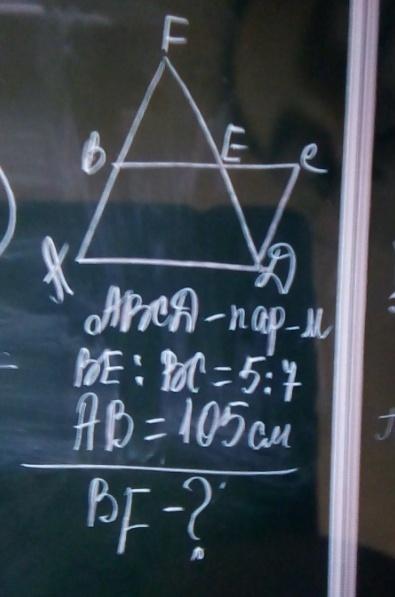 F
B E C
A D
ABCD - пар-м
BE : BC = 5:7
AB = 105 см
BF - ?